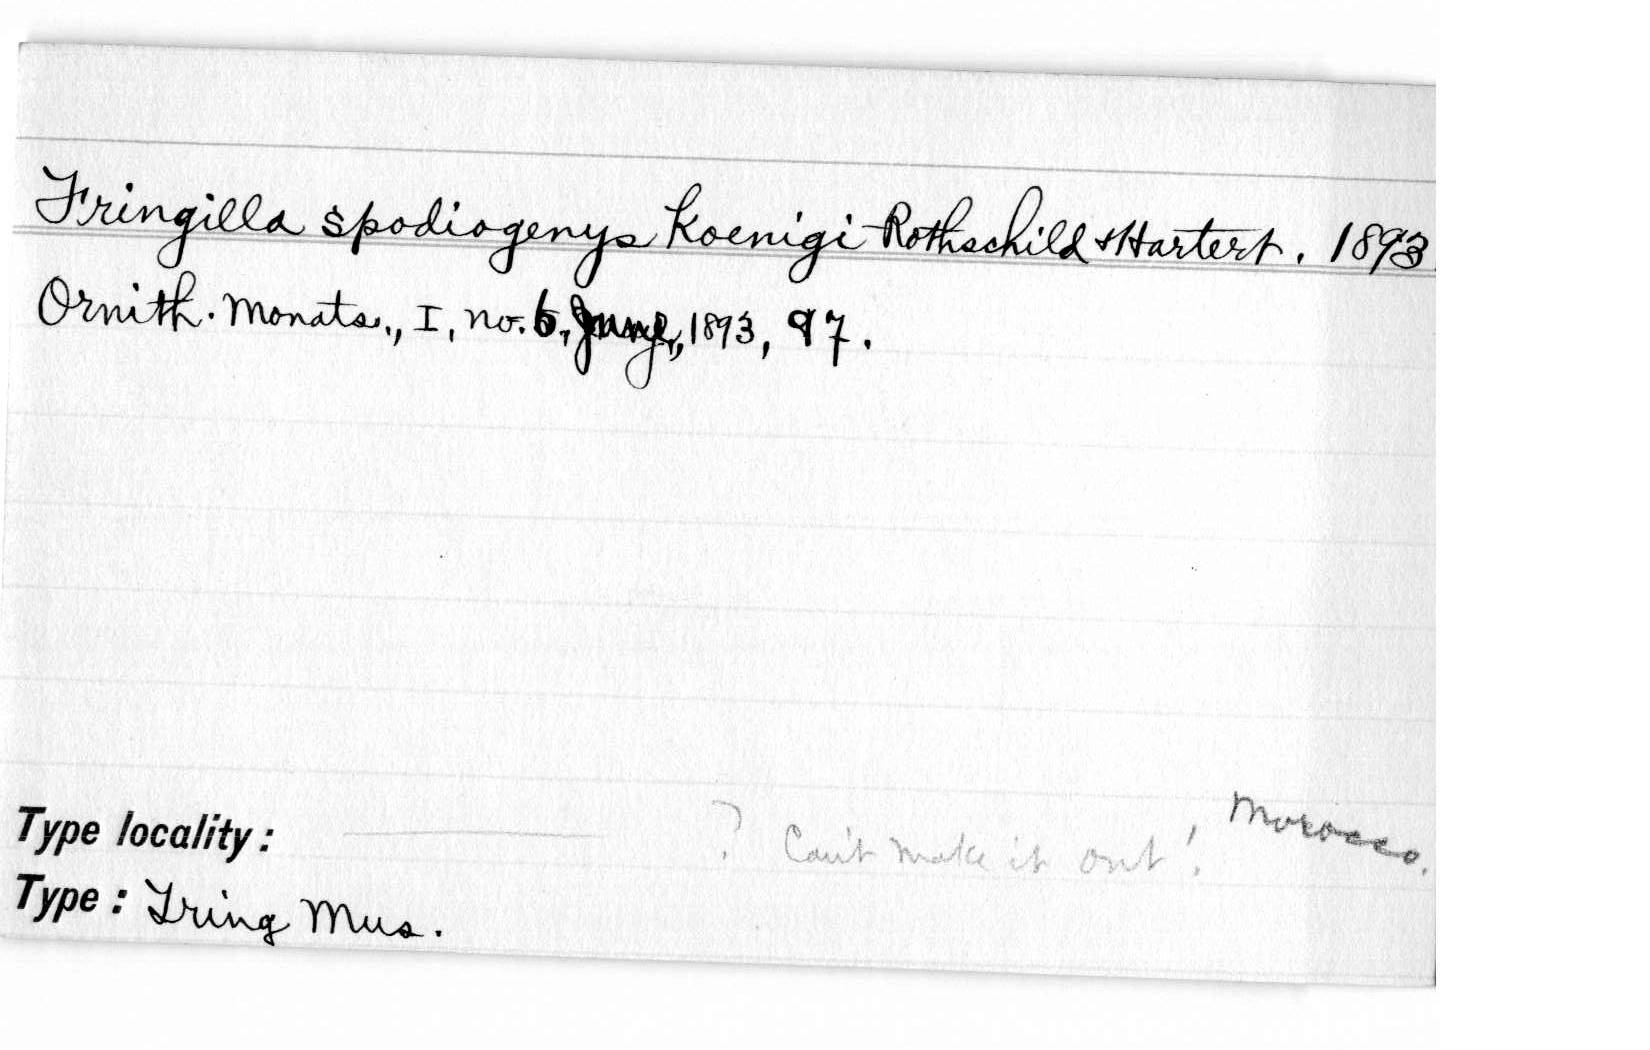 Fringilla spodiogenys Koenigi Rothschild & Hartert. 1893.
Ornith. Monats., I, no. 6, June, 1893, 97.
Type locality: ? Can't make it out! Morocco.
Type: Tring Mus.